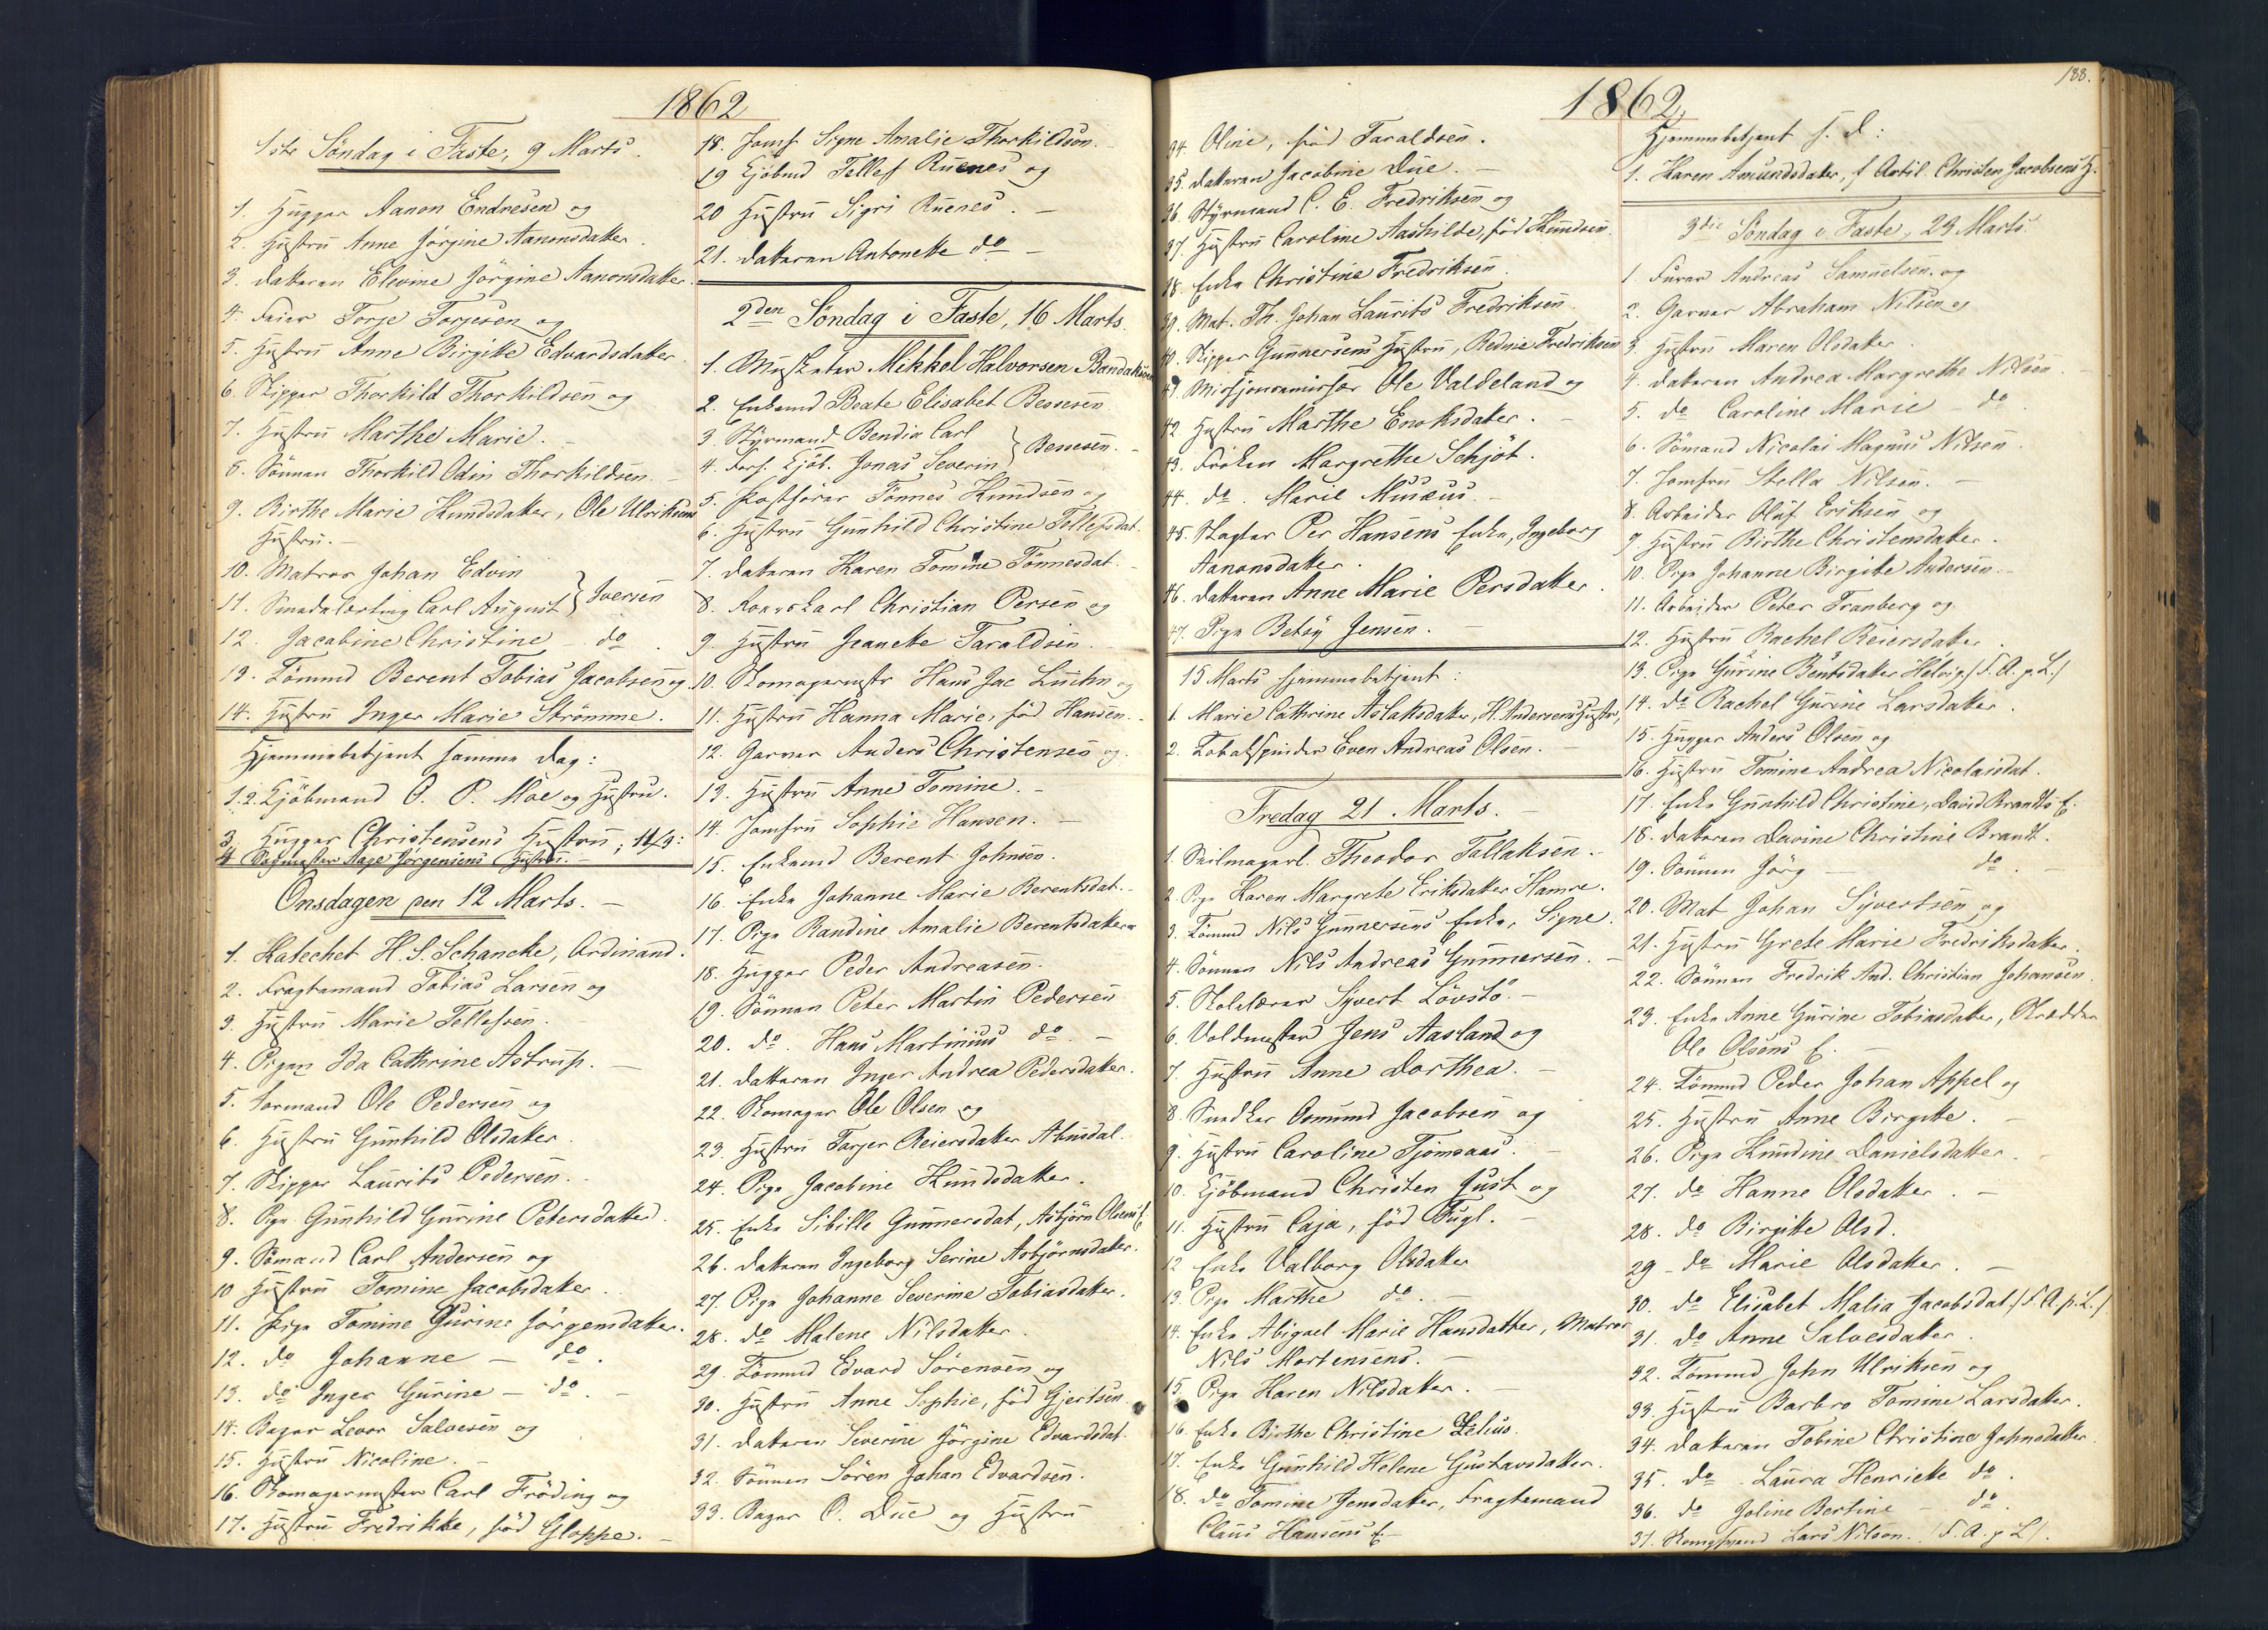 1862
1ste Søndag i Faste, 9 Marts.
1. Hugger Aanon Endresen og
2. Hustru Anne Jørgine Aanonsdatter.
3. datteren Elevine Jørgine Aanonsdatter.
4. Feier Torje Torjesen og
5. Hustru Anne Birgitte Edvardsdatter
6. Skipper Thorkild Thorkildsen og
7. Hustru Marthe Marie. –
8. Sønnen Thorkild Odin Thorkildsen. –
9. Birthe Marie Knudsdatter, Ole Ulriksens
Hustru. –
10. Matros Johan Edvin
11. Smedelærling Carl August } Iversen
12. Jacobine Christine – do.
13. Tømmd Berent Tobias Jacobsen og
14. Hustru Inger Marie Strømme.
Hjemmebetjent samme Dag:
1.2. Kjøbmand O. P. Moe og Hustru.
3. Hugger Christensens Hustru, 11/3:
4. Aage Jørgensens Hustru. –
Onsdagen den 12 Marts. –
1. Katechet H. S. Schancke, Ordinand.
2. Fragtemand Tobias Larsen og
3. Hustru Marie Tellefsen.
4. Pigen Ida Cathrine Astrup. –
5. Formand Ole Pedersen og
6. Hustru Gunhild Olsdatter.
7. Skipper Laurits Pedersen.
8. Pige Gunhild Gurine Petersdatter.
9. Sømand Carl Andersen og
10 Hustru Tomine Jacobsdatter.
11. Pige Tomine Gurine Jørgensdatter.
12. do Johanne – do.
13. do Inger Gurine – do. –
14. Bager Levor Salvesen og
15. Hustru Nicoline. –
16. Skomagermester Carl Frøding og
17. Hustru Fredrikke, fød Gloppe. –
18. Jomf Signe Amalie Thorkildsen. –
19 Kjøbmd Tellef Ruenes og
20 Hustru Sigri Ruenes. –
21. datteren Antonette do –
2den Søndag i Faste, 16 Marts.
1. Musketer Mikkel Halvorsen
2. Enkemd Beate Elisabet Bessesen
3. Styrmand Bendix Carl
4. Forh. Kjøb. Jonas Severin } Bessesen. –
5. Postfører Tønnes Knudsen og
6. Hustru Gunhild Christine Tellefsdat.
7. datteren Karen Tomine Tønnesdat. –
8. Rorskarl Christian Persen og
9. Hustru Jeanette Taraldsen.
10. Skomagermstr Hans Jac og
11. Hustru Hanna Marie, fød Hansen. –
12. Garver Anders Christensen og
13. Hustru Anne Tomine. –
14. Jomfru Sophie Hansen. –
15. Enkemd Berent Johnsen.
16. Enke Johanne Marie Berentsdat. –
17. Pige Randine Amalie Berentsdatter
18. Hugger Peder Andreasen.
19. Sønnen Peter Martin Pedersen
20. do. Hans Martinius do. –
21. datteren Inger Andrea Pedersdatter.
22. Skomager Ole Olsen og
23. Hustru Torjer Reiersdatter
24. Pige Jacobine Knudsdatter.
25. Enke Sibille Gunnersdat, Asbjørn Olsens E.
26. datteren Ingeborg Serine Asbjørnsdatter.
27. Pige Johanne Severine Tobiasdatter.
28. do Malene Nilsdatter.
29. Tømmd Edvard Sørensen og
30. Hustru Anne Sophie, fød Gjertsen
31. datteren Severine Jørgine Edvardsdat.
32. Sønnen Søren Johan Edvardsen.
33. Bager O. Due og Hustru
1862.
188.
34. Oline, fød Taraldsen.
35. datteren Jacobine Due. –
36. Styrmand C. E. Fredriksen og
37. Hustru Caroline Aashilde, fød Knudsen.
38. Enke Christine Fredriksen.
39. Mat. Th. Johan Laurits Fredriksen
40. Skipper Gunnersens Hustru, Fredriksen
41. Ole Valdeland og
42. Hustru Marthe Enoksdatter. –
43. Frøken Margrethe Schjøt.
44. do. Marie Musæus. –
45. Slagter Per Hansens Enke, Ingeborg
Aanonsdatter.
46. datteren Anne Marie Persdatter.
47. Pige Betsy Jensen. –
15 Marts hjemmebetjent:
1. Marie Cathrine Aslaksdatter, H. Andersens Hustr.,
2. Tobakspinder Even Andreas Olsen.
Fredag 21 Marts. –
1. Seilmagerl. Theodor Tallaksen. –
2. Pige Karen Margrete Eriksdatter Hamre.
3. Tømmd Nils Gunnersens Enke, Signe.
4. Sønnen Nils Andreas Gunnersen. –
5. Skolelærer Syvert Løvstø. –
6. Voldmester Jens Aasland og
7. Hustru Anne Dorthea. –
8. Snedker Osmund Jacobsen og
9. Hustru Caroline Tjomsaas. –
10. Kjøbmand Christen Gust og
11. Hustru Caja, fød Fugl. –
12 Enke Valborg Olsdatter
13. Pige Marthe do. –
14. Enke Abigael Marie Hansdatter, Matros
Nils Mortensens. –
15. Pige Karen Nilsdatter. –
16. Enke Birthe Christine Zelius.
17. Enke Gunhild Helene Gustavsdatter.
18. do Tomine Jensdatter, Fragtemand
Claus Hansens E –
Hjemmebetjent s. d:
1. Karen Amundsdatter, f Artil. Christen Jacobsens H.
3die Søndag i Faste, 23 Marts.
1. Furer Andreas Samuelsen. og
2. Garver Abraham Nilsen og
3. Hustru Maren Olsdatter
4. datteren Andrea Margrethe Nilsen. –
5. do Caroline Marie – do.
6. Sømand Nicolai Magnus Nilsen.
7. Jomfru Stella Nilsen. –
8. Arbeider Oluf Eriksen og
9 Hustru Birthe Christensdatter.
10. Pige Johanne Birgitte Andersen. –
11. Arbeider Peter Tranberg og
12. Hustru Rachel Reiersdatter.
13. Pige Gurine Bentsdatter Helvig /F. A. p. L./
14. do Rachel Gurine Larsdatter.
15. Hugger Anders Olsen og
16. Hustru Tomine Andrea Nicolaisdat.
17. Enke Gunhild Christine, David Brandts E.
18. datteren Davine Christine Brandt.
19. Sønnen Jørg – do. –
20. Mat Johan Syvertsen og
21. Hustru Grete Marie Fredriksdatter.
22. Sønnen Fredrik And. Christian Johansen
23. Enke Anne Gurine Tobiasdatter, Skrædder
Ole Olsens E. –
24. Tømmd Peder Johan Appel og
25. Hustru Anne Birgitte. –
26. Pige Knudine Danielsdatter. –
27. do Hanne Olsdatter. –
28. do Birgitte Olsd.
29 – do Marie Olsdatter. –
30. do Elisabet Malia Jacobsdat. /F. A. p. L./
31. do Anne Salvesdatter.
32. Tømmd John Ulriksen og
33. Hustru Barbro Tomine Larsdatter.
34. datteren Tobine Christine Johnsdatter
35. do – Laura Henriette do.
36. do Joline Bertine – do.
37. Lars Nilsen. /F. A. p L/.